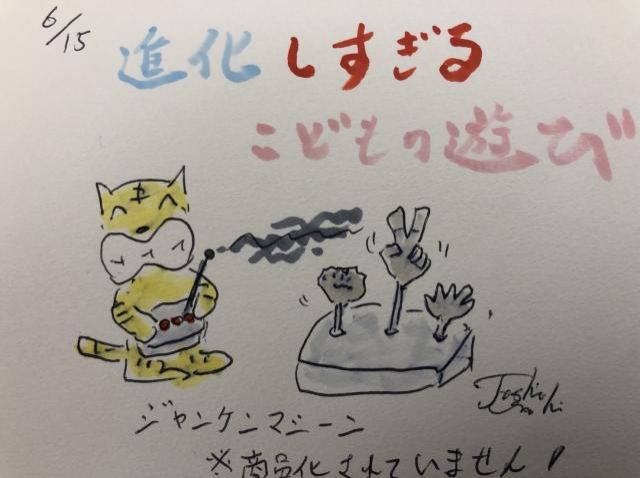 6/15
進化しすぎる
こどもの遊び
ジャンケンマシーン
※商品化されていません!